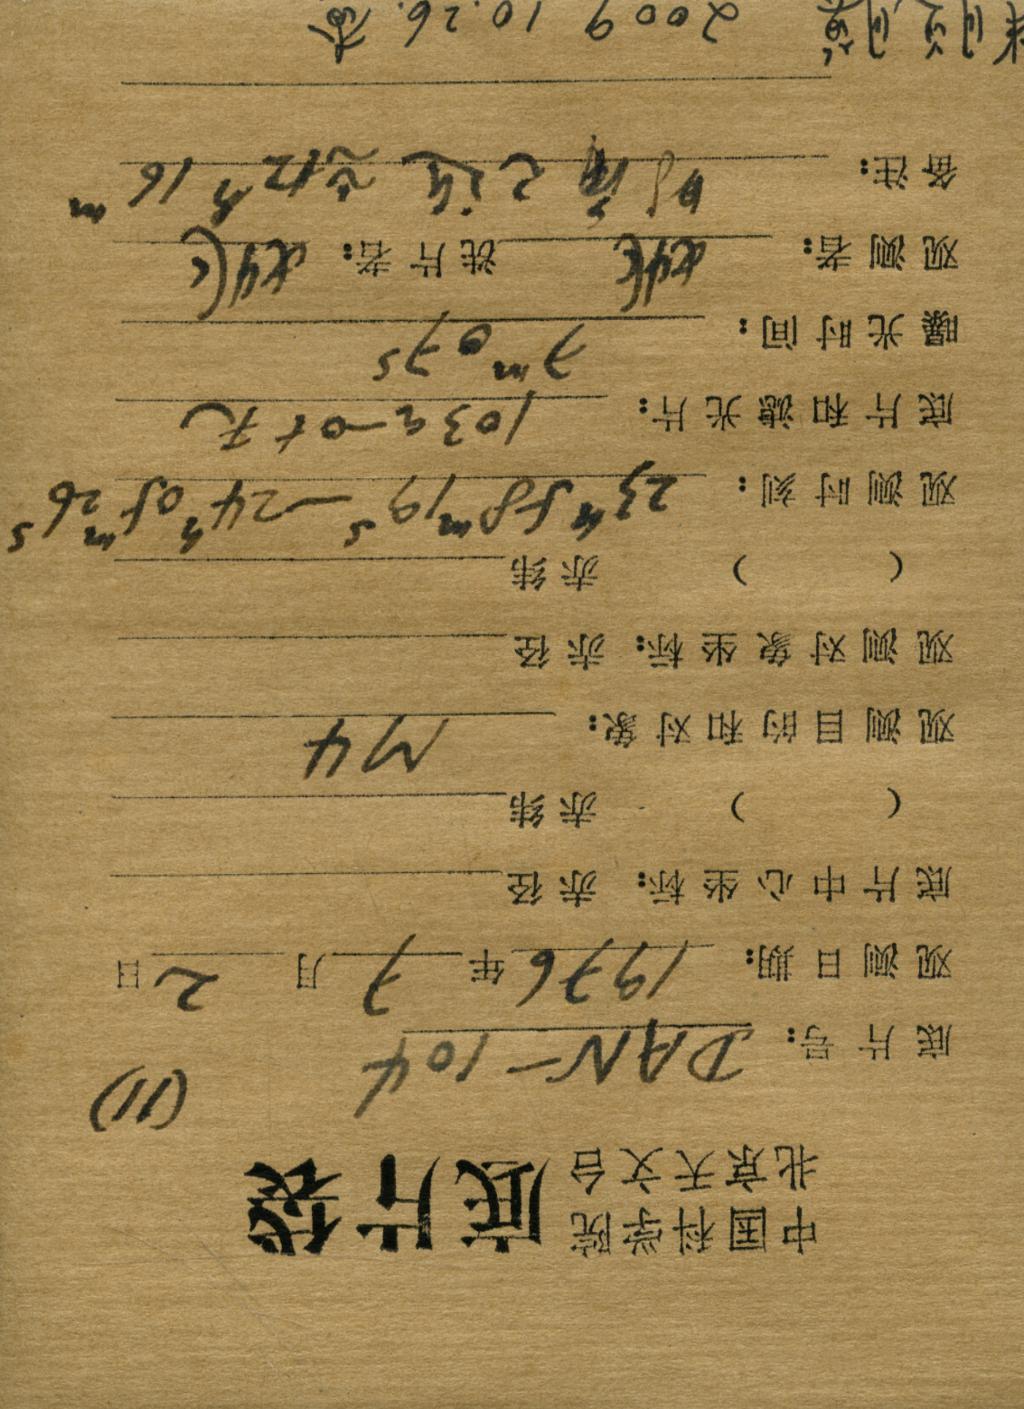 中国科学院
北京天文台
底片袋
(11)
底片号: DAN-104
观测日期: 1976年7月2日
底片中心坐标: 赤径
( ) 赤纬
观测目的和对象: M4
观测对象坐标: 赤径
( ) 赤纬
观测时刻: 23h58m19s—24h05m26s
底片和滤光片: 103a-O+无
曝光时间: 7m07s
观测者: 洗片者:
备注: 12h16m
2009.10.26.